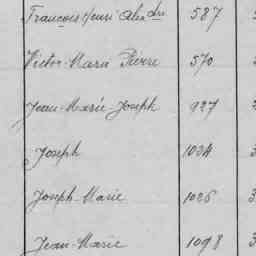 François Henri Alexdre 587
Victor Marie Pierre 570
Jean-Marie-Joseph 927
Joseph 1034 3
Joseph-Marie 1026 3
Jean-Marie 1098 3